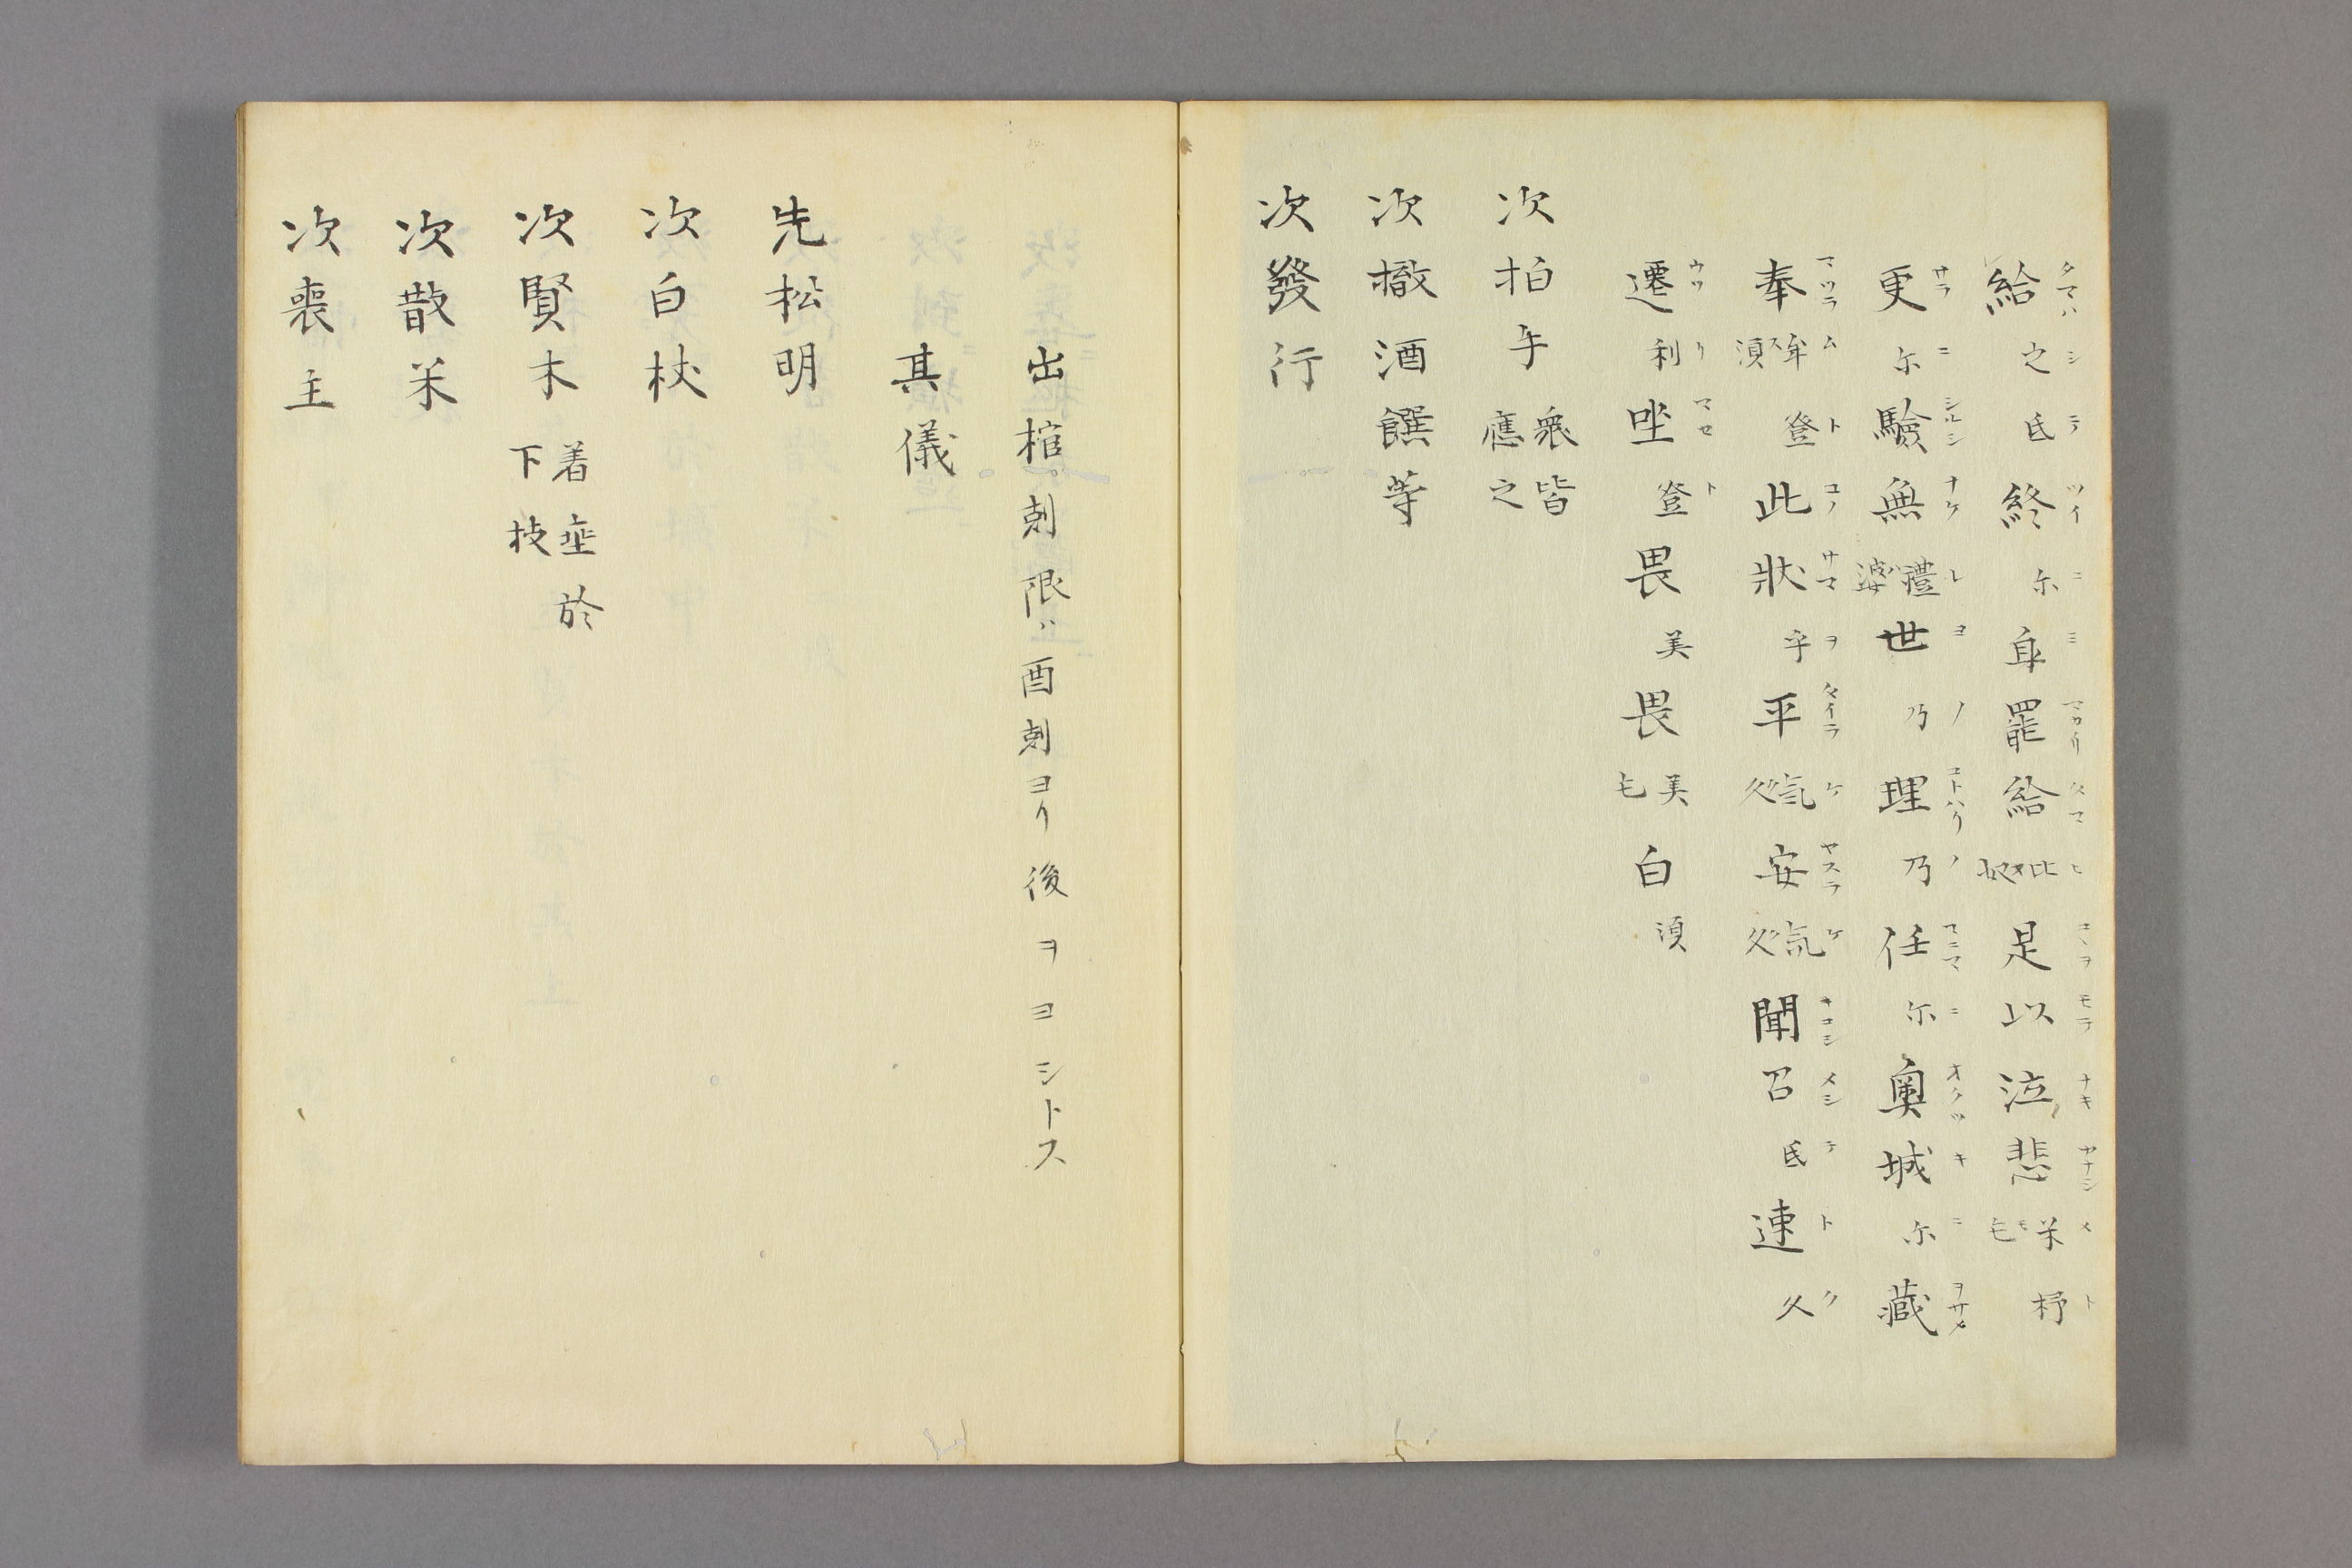 給之氐終尓身罷給比奴是以泣悲米毛杼
更尓驗無禮婆世乃理乃任尓奥城尓藏
奉牟須登此狀乎平気久安気久聞召氐速久
遷利坐登畏美畏美毛白須
次拍手 衆皆應之
次撤酒饌等
次發行
出棺ノ刻限ハ酉刻ヨリ後ヲヨシトス
其儀
先松明
次白杖
次賢木 着垂於下枝
次散米
次喪主